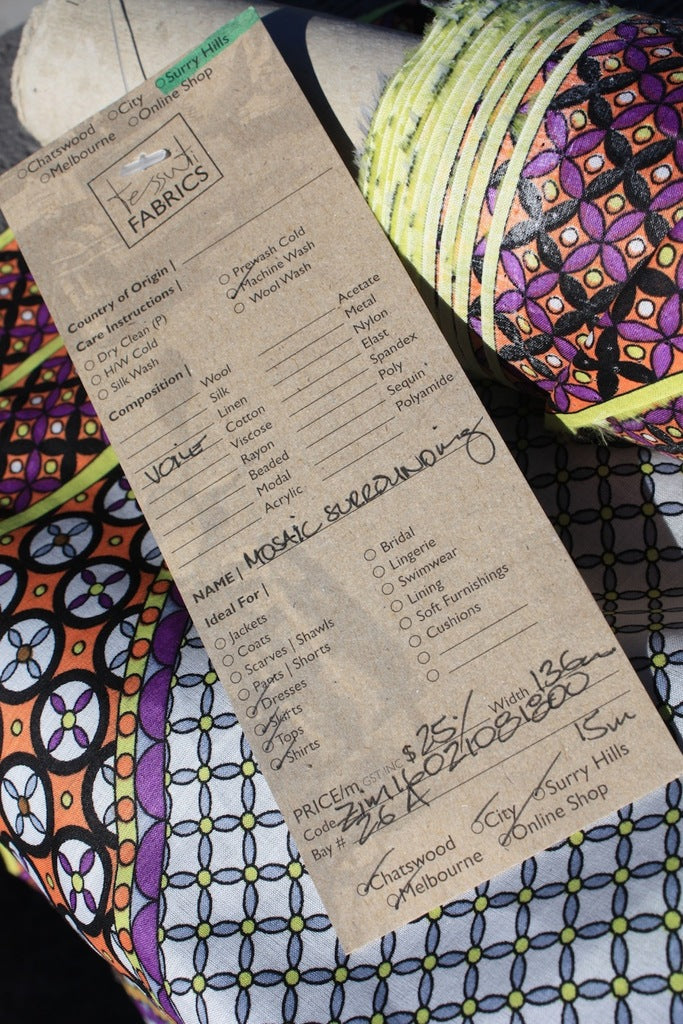 Chatswood City Surry Hills
Melbourne Online Shop
tessuti
FABRICS
Country of Origin |
Care Instructions |
Dry Clean (P) Prewash Cold
H/W Cold Machine Wash
Silk Wash Wool Wash
Composition |
Wool Acetate
Silk Metal
Linen Nylon
VOILE Cotton Elast
Viscose Spandex
Rayon Poly
Beaded Sequin
Modal Polyamide
Acrylic
NAME | MOSAIC SURROUNDING
Ideal For |
Jackets Bridal
Coats Lingerie
Scarves | Shawls Swimwear
Pants | Shorts Lining
Dresses Soft Furnishings
Skirts Cushions
Tops
Shirts
PRICE/m GST INC $25/ Width 136cm
Code
Bay # 26A 15m
Chatswood City Surry Hills
Melbourne Online Shop